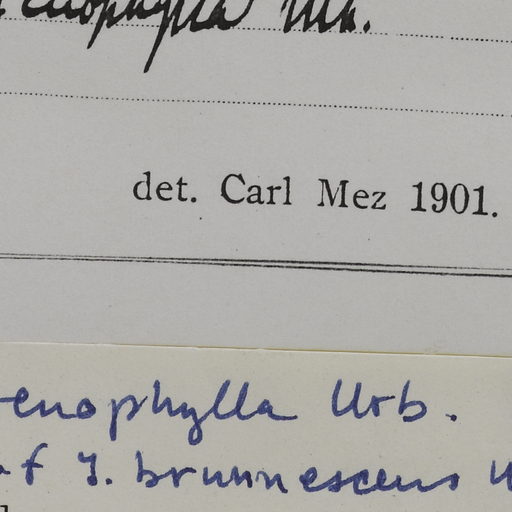 enophylla Urb.
det. Carl Mez 1901.
enophylla Urb.
of J. brunnescens U